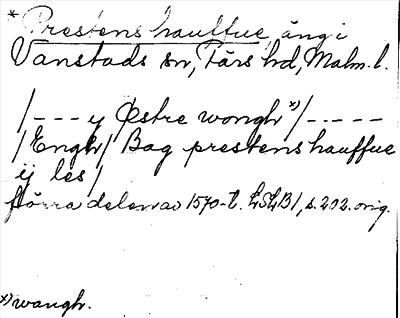 * Prestens hauffue, äng i
Vanstads sn, Färs hd, Malm. l.
/--- y Østre wongh *)/-----
/Engh/ Bag prestens hauffue
ij les/
förra delen av 1570-t. LSLB1, s. 202. orig.
*) wangh.